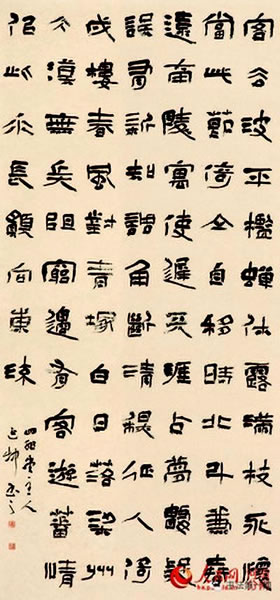 客去波平檻蟬休露滿枝永懷
當此節倚立自移時北斗兼春
遠南陵寓使遲天涯占夢數疑
誤有新知調角斷清秋征人倚
戍樓春風對青塚白日落梁州
大漠無兵阻窮邊有客遊蕃情
似此水長願向東流
主人